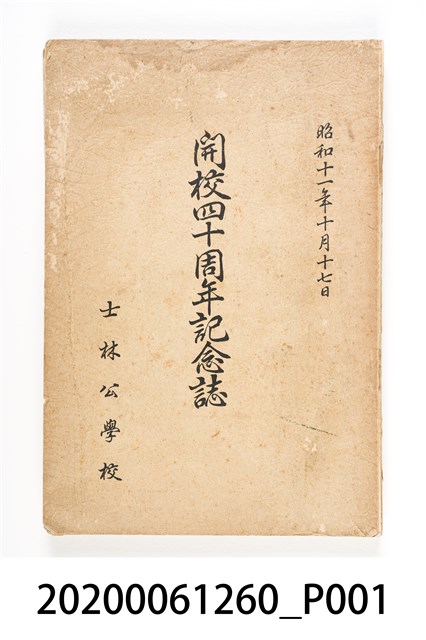 昭和十一年十月十七日
開校四十周年記念誌
士林公學校
20200061260_P001